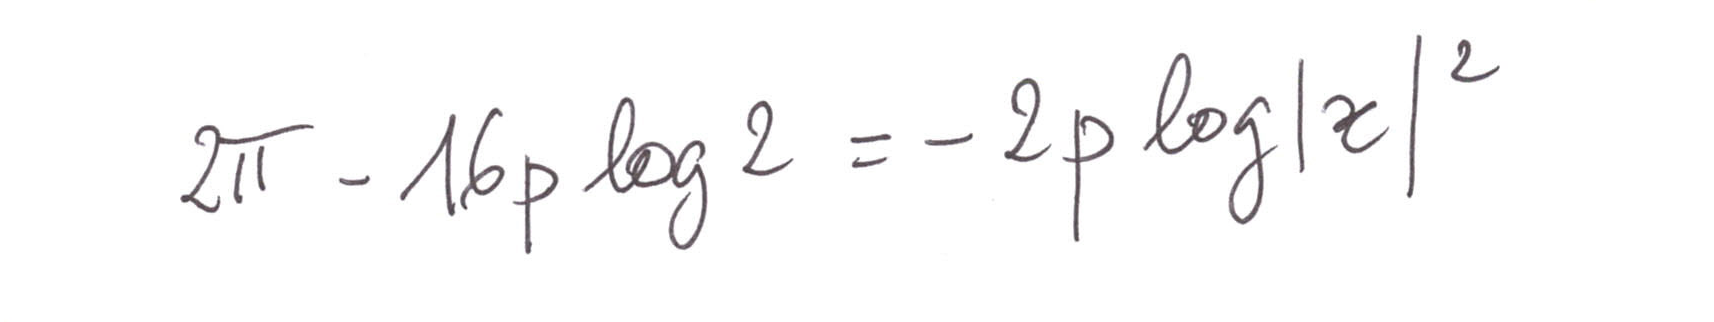 2π - 16p log 2 = - 2p log |z|²